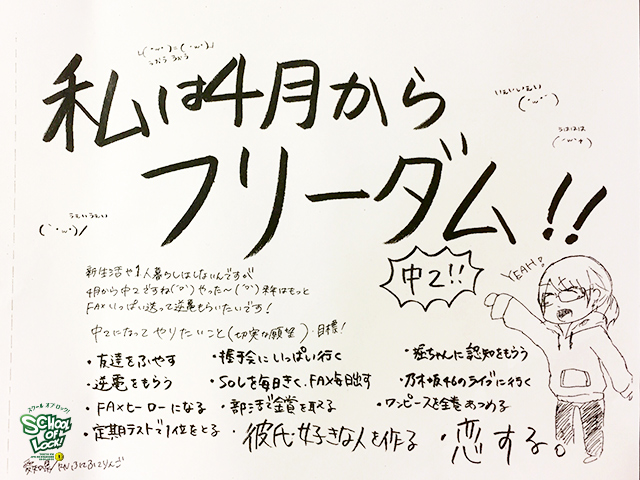 し(˙ω˙)=(˙ω˙)J
私は4月から
いえいいえい
フリーダム!!
うぇいうぇい
YEAH!
中2!!
新生活や1人暮らしはしないんですが
4月から中2ですね(˙o˙)やった〜(˙o˙)
FAXいっぱい送って逆電もらいたいです!
中2になってやりたいこと(切実な願望)・目標!
・友達をふやす ・握手会にいっぱい行く ・堀ちゃんに認知をもらう
・逆電をもらう ・SOLを毎日きく、FAX毎日出す ・乃木坂46のライブに行く
・FAXヒーローになる ・部活で金賞を取る ・ワンピースを全巻あつめる
・定期テストで1位をとる ・彼氏・好きな人を作る ・恋する。
スクールオブロック!
SCHOOL OF LOCK!